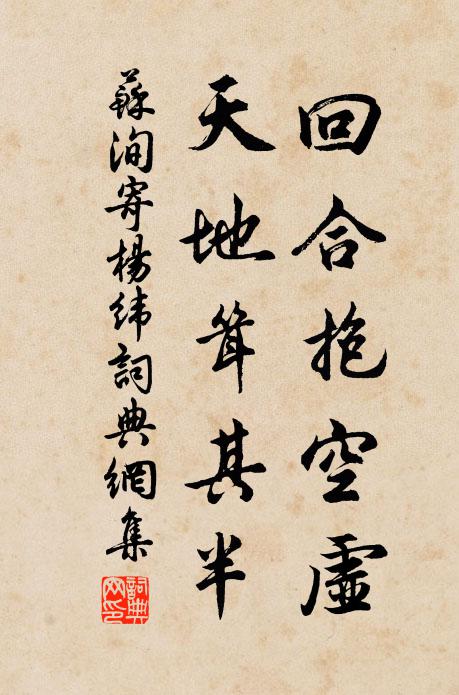 回合抱空虛
天地聳其半
蘇洵寄楊緯詞典網集
詞典网印